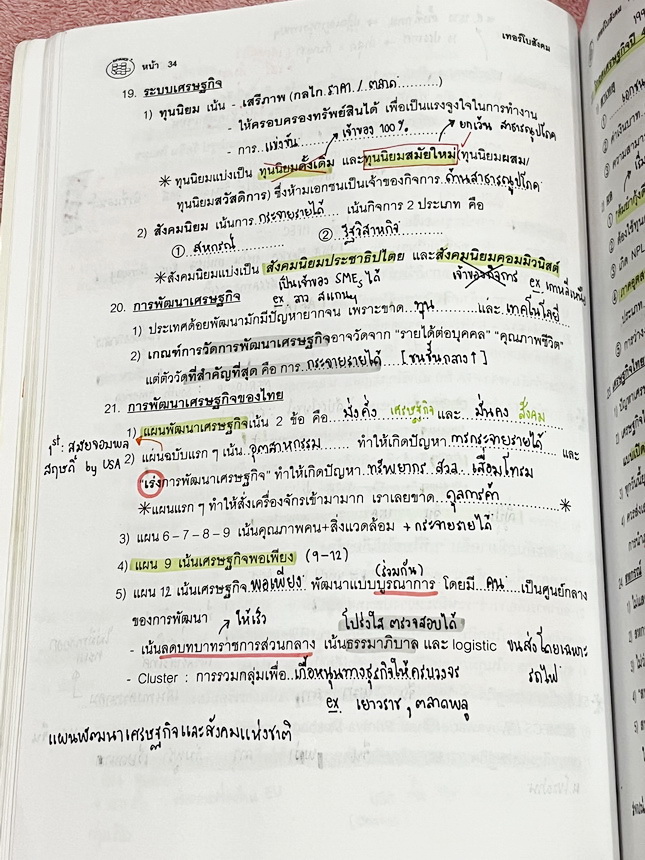 หน้า 34
เทอร์โบสังคม
19. ระบบเศรษฐกิจ
1) ทุนนิยม เน้น - เสรีภาพ (กลไก ราคา / ตลาด..........)
- ให้ครอบครองทรัพย์สินได้ เพื่อเป็นแรงจูงใจในการทำงาน
- การ..แข่งขัน.......... เจ้าของ 100% ยกเว้น สาธารณูปโภค
* ทุนนิยมแบ่งเป็น ทุนนิยมดั้งเดิม และทุนนิยมสมัยใหม่(ทุนนิยมผสม/
ทุนนิยมสวัสดิการ) ซึ่งห้ามเอกชนเป็นเจ้าของกิจการ..ด้านสาธารณูปโภค
2) สังคมนิยม เน้นการ..กระจายรายได้.... เน้นกิจการ 2 ประเภท คือ
① สหกรณ์.............. ② รัฐวิสาหกิจ..........
*สังคมนิยมแบ่งเป็น สังคมนิยมประชาธิปไตย และสังคมนิยมคอมมิวนิสต์
เป็นเจ้าของ SMEs ได้ เจ้าของกิจการ ex. เกาหลีเหนือ
20. การพัฒนาเศรษฐกิจ ex. ลาว สแกนฯ
1) ประเทศด้อยพัฒนามักมีปัญหายากจน เพราะขาด..ทุน..........และ..เทคโนโลยี....
2) เกณฑ์การวัดการพัฒนาเศรษฐกิจอาจวัดจาก "รายได้ต่อบุคคล" "คุณภาพชีวิต"
แต่ตัววัดที่สำคัญที่สุด คือ การ..กระจายรายได้.... [ชนชั้นกลาง↑]
21. การพัฒนาเศรษฐกิจของไทย
1) แผนพัฒนาเศรษฐกิจเน้น 2 ข้อ คือ....มั่งคั่ง เศรษฐกิจ และ...มั่นคง สังคม
1st : สมัยจอมพล
สฤษดิ์ by USA
2) แผนฉบับแรก ๆ เน้น..อุตสาหกรรม........ ทำให้เกิดปัญหา..การกระจายรายได้.... และ
"เร่งการพัฒนาเศรษฐกิจ" ทำให้เกิดปัญหา..ทรัพยากร สวล. เสื่อมโทรม
*แผนแรก ๆ ทำให้สั่งเครื่องจักรเข้ามามาก เราเลยขาด..ดุลการค้า..............*
3) แผน 6-7-8-9 เน้นคุณภาพคน+สิ่งแวดล้อม + กระจายรายได้
4) แผน 9 เน้นเศรษฐกิจพอเพียง (9-12)
(ร่วมกัน)
5) แผน 12 เน้นเศรษฐกิจ..พอเพียง.... พัฒนาแบบบูรณาการ โดยมี...คน......เป็นศูนย์กลาง
ของการพัฒนา ให้เร็ว โปร่งใส ตรวจสอบได้
- เน้นลดบทบาทราชการส่วนกลาง เน้นธรรมาภิบาล และ logistic ขนส่งโดยเฉพาะ
รถไฟ
- Cluster : การรวมกลุ่มเพื่อ..เกื้อหนุนทางธุรกิจให้ครบวงจร
ex เยาวราช , ตลาดพลู
แผนพัฒนาเศรษฐกิจและสังคมแห่งชาติ